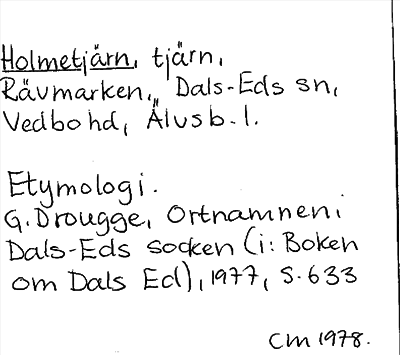 Holmetjärn, tjärn,
Rävmarken, Dals-Eds sn,
Vedbo hd, Älvsb. l.
Etymologi.
G. Drougge, Ortnamnen i
Dals-Eds socken (i: Boken
om Dals Ed), 1977, S. 633
CM 1978.